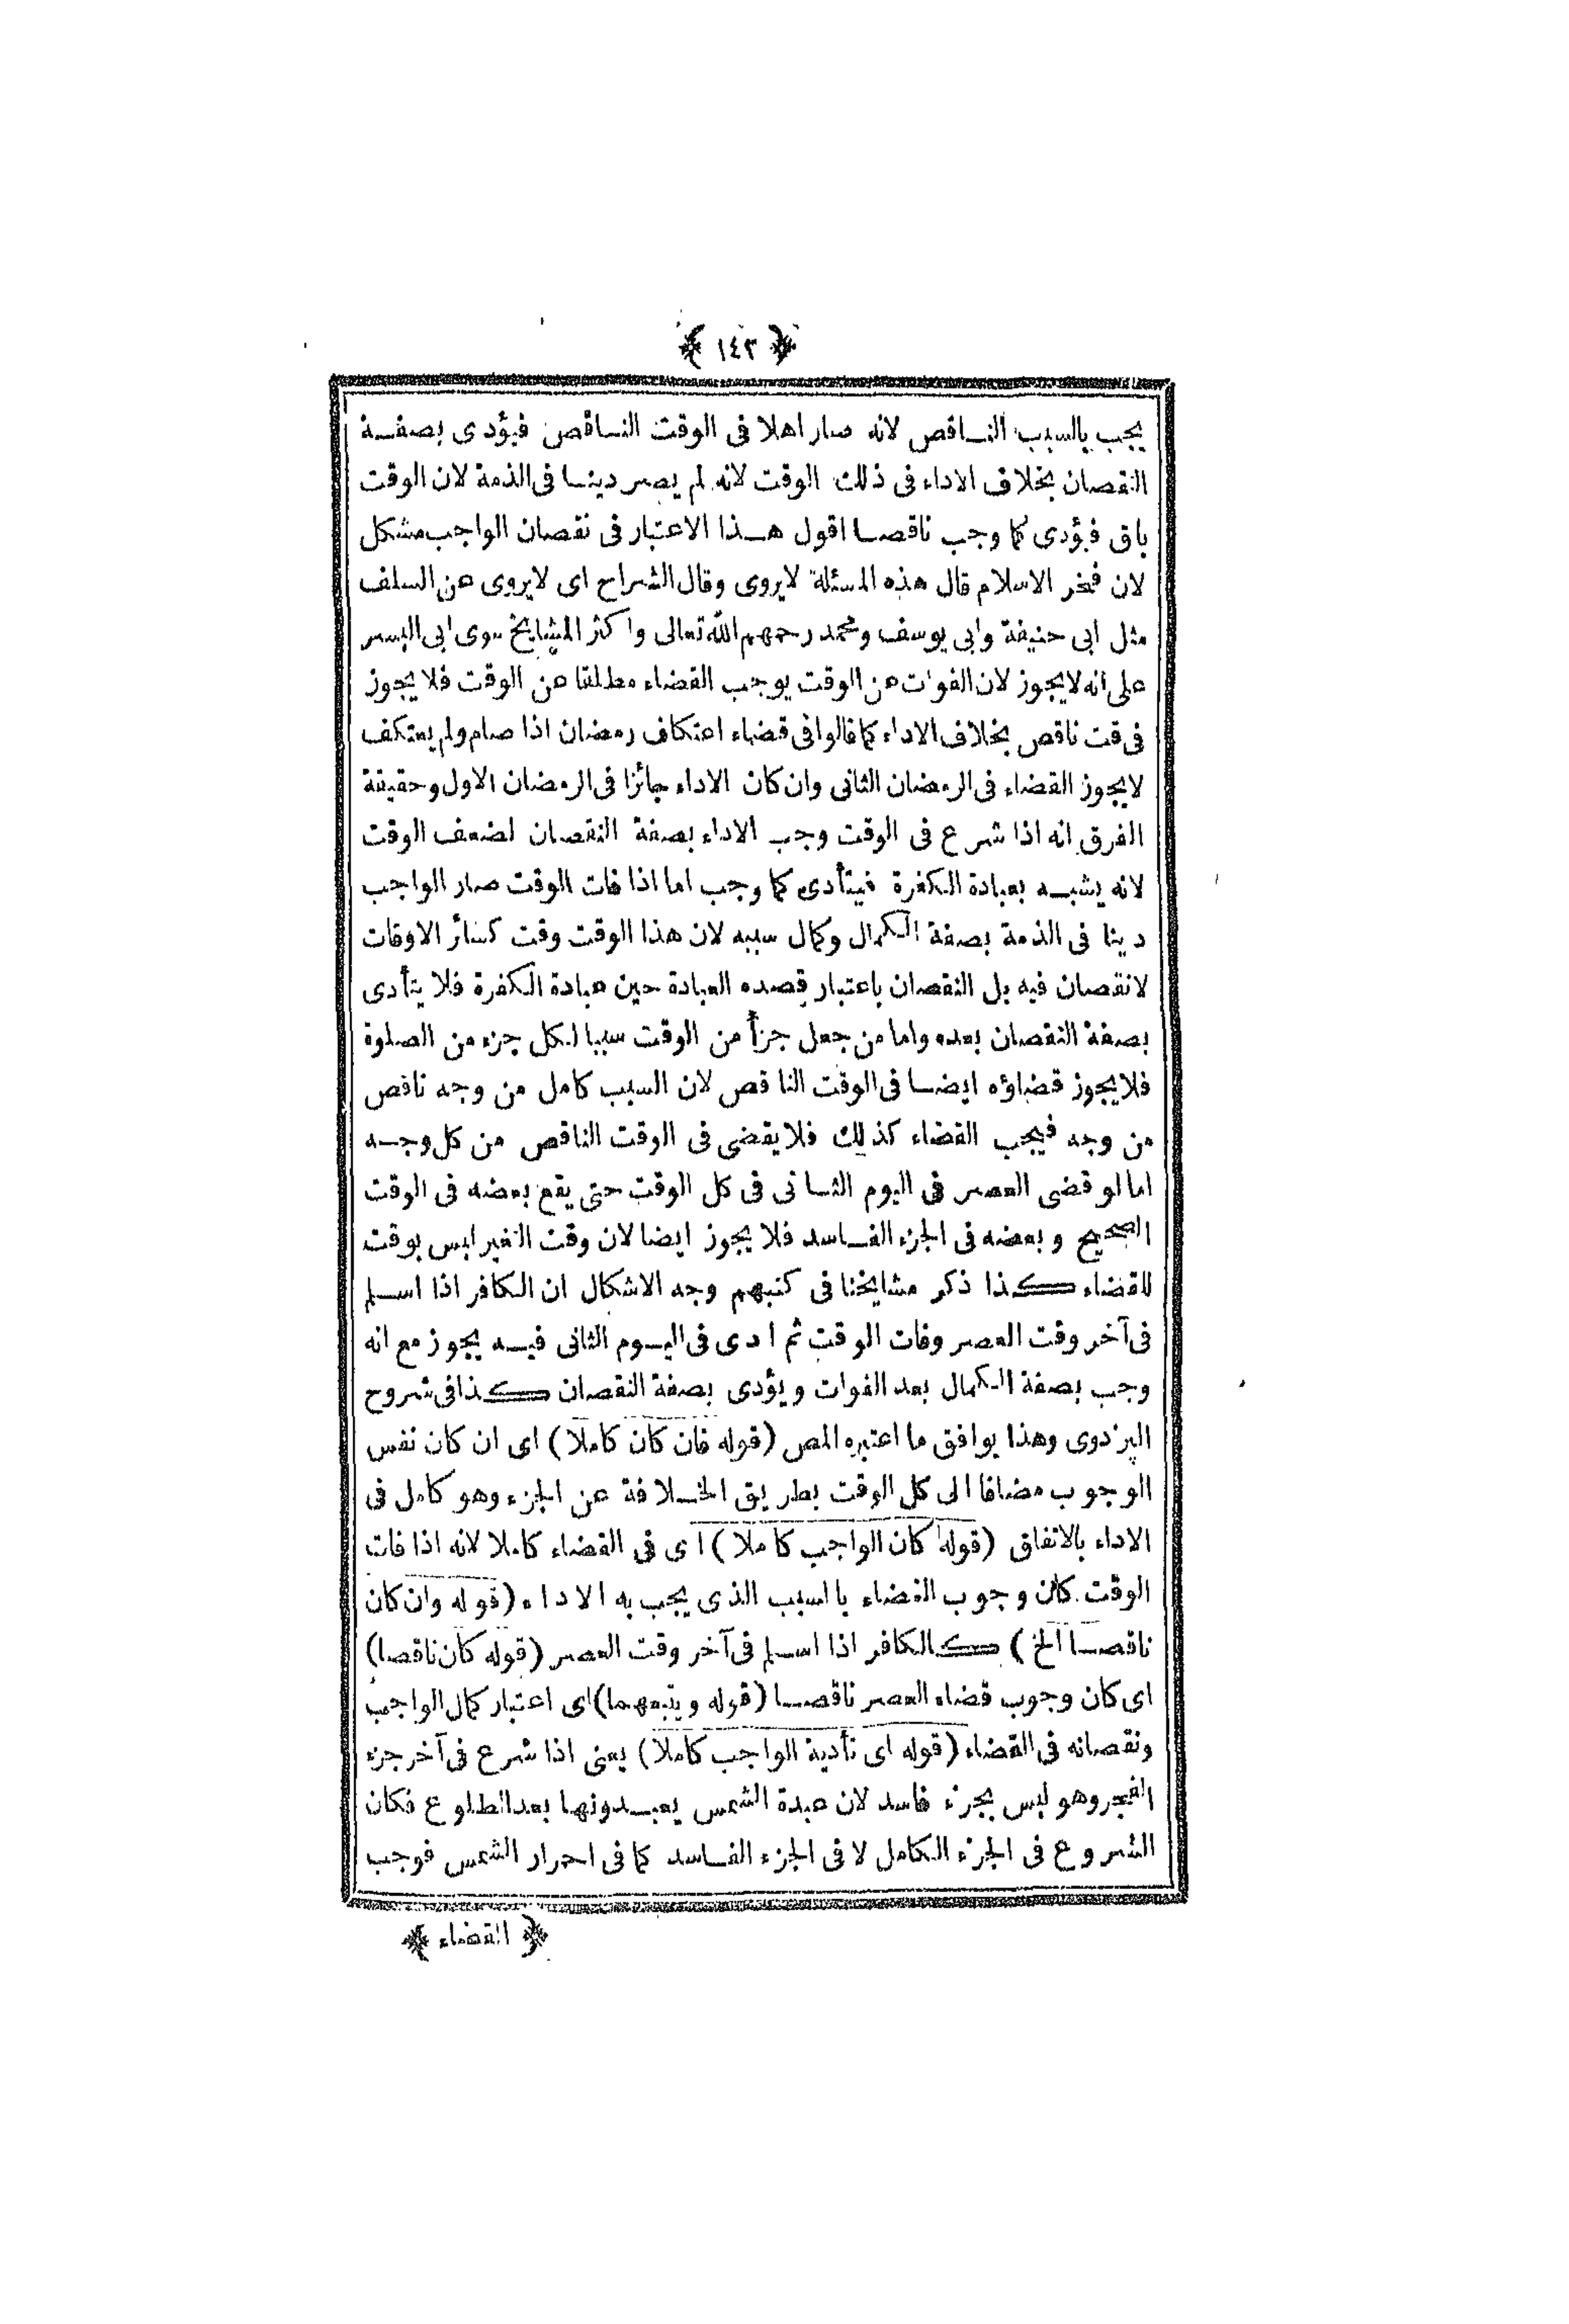 ﴿ ١٤٣ ﴾
يجب بالسبب الناقص لانه صار اهلا فى الوقت الناقص فيؤدى بصفة
النقصان بخلاف الاداء فى ذلك الوقت لانه لم يصر دينا فى الذمة لان الوقت
باق فيؤدى كما وجب ناقصا اقول هذا الاعتبار فى نقصان الواجب مشكل
لان فخر الاسلام قال هذه المسئلة لايروى وقال الشراح اى لايروى عن السلف
مثل ابى حنيفة وابى يوسف ومحمد رحمهم الله تعالى واكثر المشايخ سوى ابى اليسر
على انه لايجوز لان الفوات عن الوقت يوجب القضاء مطلقا عن الوقت فلا يجوز
فى قت ناقص بخلاف الاداء كما قالوا فى قضاء اعتكاف رمضان اذا صام ولم يعتكف
لايجوز القضاء فى الرمضان الثانى وان كان الاداء جائزا فى الرمضان الاول وحقيقة
الفرق انه اذا شرع فى الوقت وجب الاداء بصفة النقصان لضعف الوقت
لانه يشبه بعبادة الكفرة فيتأدى كما وجب اما اذا فات الوقت صار الواجب
دينا فى الذمة بصفة الكمال وكمال سببه لان هذا الوقت وقت كسائر الاوقات
لانقصان فيه بل النقصان باعتبار قصده العبادة حين عبادة الكفرة فلا يتأدى
بصفة النقصان بعده واما من جعل جزأ من الوقت سببا لكل جزء من الصلوة
فلايجوز قضاؤه ايضا فى الوقت الناقص لان السبب كامل من وجه ناقص
من وجه فيجب القضاء كذلك فلايقضى فى الوقت الناقص من كل وجه
اما لو قضى العصر فى اليوم الثانى فى كل الوقت حتى يقع بعضه فى الوقت
الصحيح وبعضه فى الجزء الفاسد فلا يجوز ايضا لان وقت التغير ليس بوقت
للقضاء كذا ذكر مشايخنا فى كتبهم وجه الاشكال ان الكافر اذا اسلم
فى آخر وقت العصر وفات الوقت ثم ادى فى اليوم الثانى فيه يجوز مع انه
وجب بصفة الكمال بعد الفوات ويؤدى بصفة النقصان كذا فى شروح
البزدوى وهذا يوافق ما اعتبره المص (قوله فان كان كاملا) اى ان كان نفس
الوجوب مضافا الى كل الوقت بطريق الخلافة عن الجزء وهو كامل فى
الاداء بالاتفاق (قوله كان الواجب كاملا) اى فى القضاء كاملا لانه اذا فات
الوقت كان وجوب القضاء بالسبب الذى يجب به الاداء (قوله وان كان
ناقصا الخ) كالكافر اذا اسلم فى آخر وقت العصر (قوله كان ناقصا)
اى كان وجوب قضاء العصر ناقصا (قوله ويتبعهما) اى اعتبار كمال الواجب
ونقصانه فى القضاء (قوله اى تأدية الواجب كاملا) يعنى اذا شرع فى آخر جزء
الفجر وهو ليس بجزء فاسد لان عبدة الشمس يعبدونها بعد الطلوع فكان
الشروع فى الجزء الكامل لا فى الجزء الفاسد كما فى احمرار الشمس فوجب
﴿ القضاء ﴾